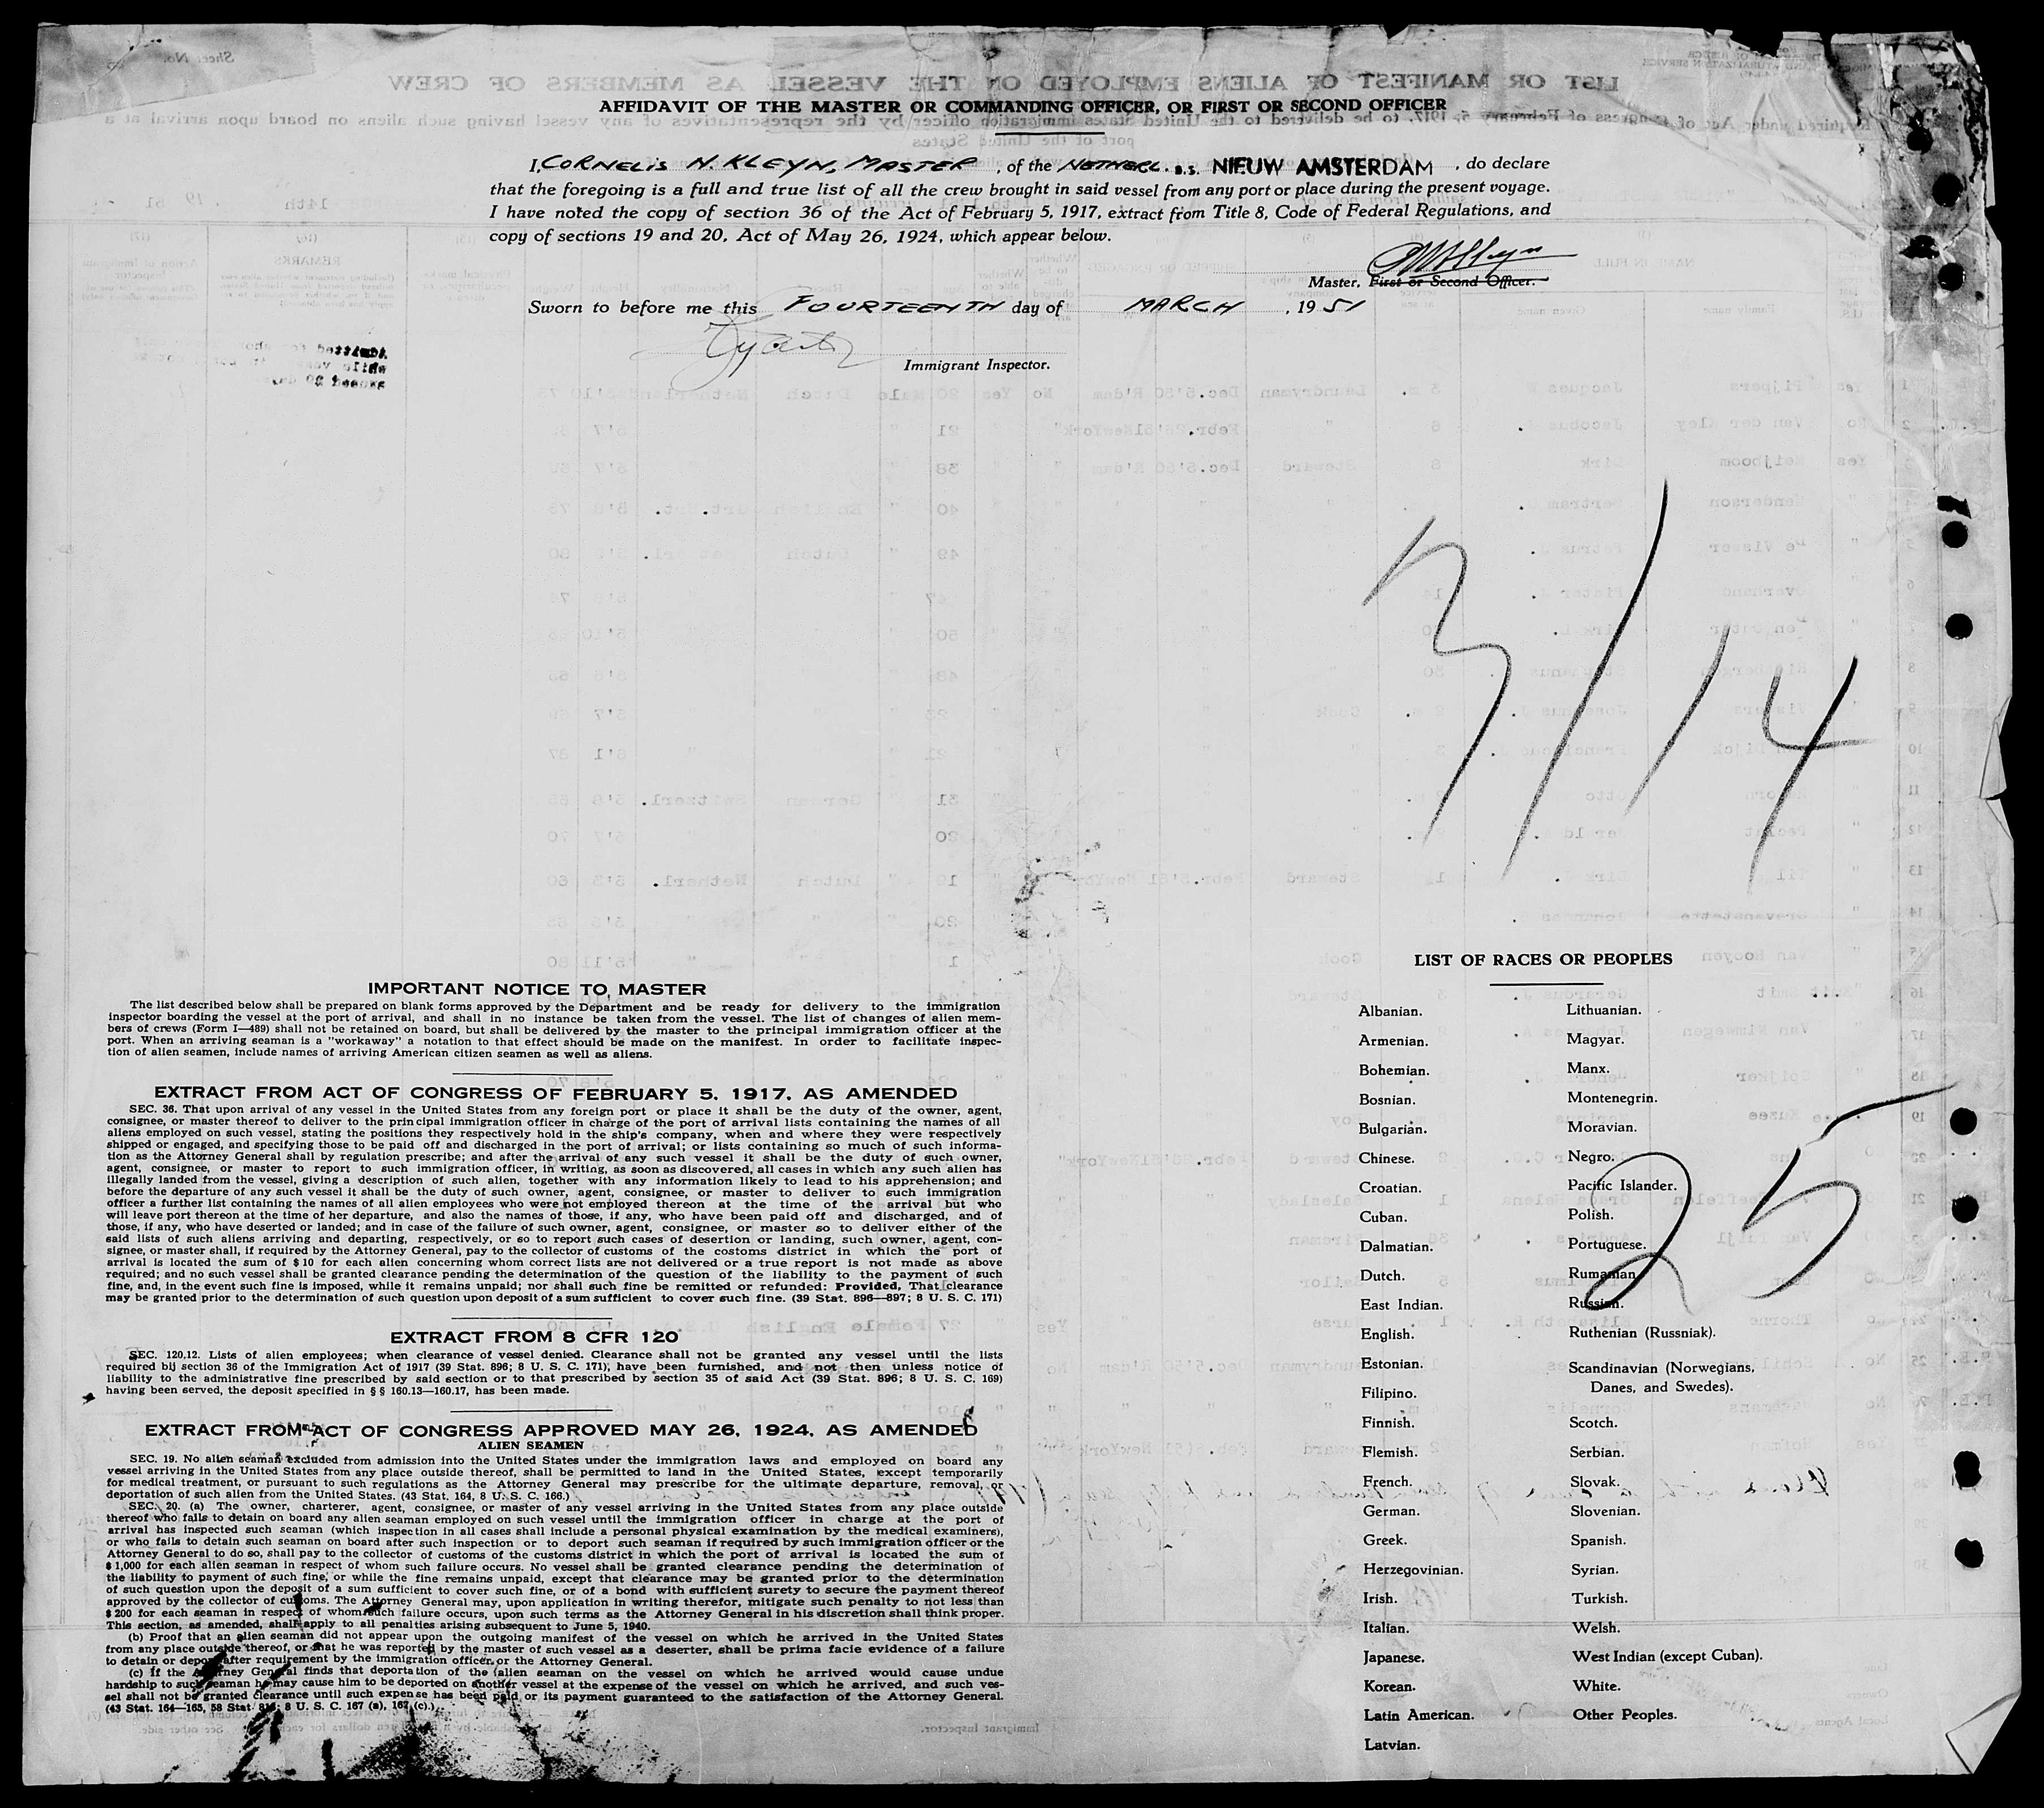 AFFIDAVIT OF THE MASTER OR COMMANDING OFFICER, OR FIRST OR SECOND OFFICER
I, CORNELIS N. KLEYN, MASTER, of the NETHERL. s.s. NIEUW AMSTERDAM, do declare
that the foregoing is a full and true list of all the crew brought in said vessel from any port or place during the present voyage.
I have noted the copy of section 36 of the Act of February 5, 1917, extract from Title 8, Code of Federal Regulations, and
copy of sections 19 and 20, Act of May 26, 1924, which appear below.
Master, First or Second Officer.
Sworn to before me this FOURTEENTH day of MARCH, 1951
Immigrant Inspector.
3/14
25
IMPORTANT NOTICE TO MASTER
The list described below shall be prepared on blank forms approved by the Department and be ready for delivery to the immigration
inspector boarding the vessel at the port of arrival, and shall in no instance be taken from the vessel. The list of changes of alien mem-
bers of crews (Form I—489) shall not be retained on board, but shall be delivered by the master to the principal immigration officer at the
port. When an arriving seaman is a "workaway" a notation to that effect should be made on the manifest. In order to facilitate inspec-
tion of alien seamen, include names of arriving American citizen seamen as well as aliens.
EXTRACT FROM ACT OF CONGRESS OF FEBRUARY 5, 1917, AS AMENDED
SEC. 36. That upon arrival of any vessel in the United States from any foreign port or place it shall be the duty of the owner, agent,
consignee, or master thereof to deliver to the principal immigration officer in charge of the port of arrival lists containing the names of all
aliens employed on such vessel, stating the positions they respectively hold in the ship's company, when and where they were respectively
shipped or engaged, and specifying those to be paid off and discharged in the port of arrival; or lists containing so much of such informa-
tion as the Attorney General shall by regulation prescribe; and after the arrival of any such vessel it shall be the duty of such owner,
agent, consignee, or master to report to such immigration officer, in writing, as soon as discovered, all cases in which any such alien has
illegally landed from the vessel, giving a description of such alien, together with any information likely to lead to his apprehension; and
before the departure of any such vessel it shall be the duty of such owner, agent, consignee, or master to deliver to such immigration
officer a further list containing the names of all alien employees who were not employed thereon at the time of the arrival but who
will leave port thereon at the time of her departure, and also the names of those, if any, who have been paid off and discharged, and of
those, if any, who have deserted or landed; and in case of the failure of such owner, agent, consignee, or master so to deliver either of the
said lists of such aliens arriving and departing, respectively, or so to report such cases of desertion or landing, such owner, agent, con-
signee, or master shall, if required by the Attorney General, pay to the collector of customs of the costoms district in which the port of
arrival is located the sum of $10 for each alien concerning whom correct lists are not delivered or a true report is not made as above
required; and no such vessel shall be granted clearance pending the determination of the question of the liability to the payment of such
fine, and, in the event such fine is imposed, while it remains unpaid; nor shall such fine be remitted or refunded: Provided, That clearance
may be granted prior to the determination of such question upon deposit of a sum sufficient to cover such fine. (39 Stat. 896—897; 8 U. S. C. 171)
EXTRACT FROM 8 CFR 120
SEC. 120,12. Lists of alien employees; when clearance of vessel denied. Clearance shall not be granted any vessel until the lists
required bij section 36 of the Immigration Act of 1917 (39 Stat. 896; 8 U. S. C. 171), have been furnished, and not then unless notice of
liability to the administrative fine prescribed by said section or to that prescribed by section 35 of said Act (39 Stat. 896; 8 U. S. C. 169)
having been served, the deposit specified in § § 160.13—160.17, has been made.
EXTRACT FROM ACT OF CONGRESS APPROVED MAY 26, 1924, AS AMENDED
ALIEN SEAMEN
SEC. 19. No alien seaman excluded from admission into the United States under the immigration laws and employed on board any
vessel arriving in the United States from any place outside thereof, shall be permitted to land in the United States, except temporarily
for medical treatment, or pursuant to such regulations as the Attorney General may prescribe for the ultimate departure, removal, or
deportation of such alien from the United States. (43 Stat. 164, 8 U. S. C. 166.)
SEC. 20. (a) The owner, charterer, agent, consignee, or master of any vessel arriving in the United States from any place outside
thereof who fails to detain on board any alien seaman employed on such vessel until the immigration officer in charge at the port of
arrival has inspected such seaman (which inspection in all cases shall include a personal physical examination by the medical examiners),
or who fails to detain such seaman on board after such inspection or to deport such seaman if required by such immigration officer or the
Attorney General to do so, shall pay to the collector of customs of the customs district in which the port of arrival is located the sum of
$1,000 for each alien seaman in respect of whom such failure occurs. No vessel shall be granted clearance pending the determination of
the liability to payment of such fine, or while the fine remains unpaid, except that clearance may be granted prior to the determination
of such question upon the deposit of a sum sufficient to cover such fine, or of a bond with sufficient surety to secure the payment thereof
approved by the collector of customs. The Attorney General may, upon application in writing therefor, mitigate such penalty to not less than
$200 for each seaman in respect of whom such failure occurs, upon such terms as the Attorney General in his discretion shall think proper.
This section, as amended, shall apply to all penalties arising subsequent to June 5, 1940.
(b) Proof that an alien seaman did not appear upon the outgoing manifest of the vessel on which he arrived in the United States
from any place outside thereof, or that he was reported by the master of such vessel as a deserter, shall be prima facie evidence of a failure
to detain or deport after requirement by the immigration officer or the Attorney General.
(c) If the Attorney General finds that deportation of the alien seaman on the vessel on which he arrived would cause undue
hardship to such seaman he may cause him to be deported on another vessel at the expense of the vessel on which he arrived, and such ves-
sel shall not be granted clearance until such expense has been paid or its payment guaranteed to the satisfaction of the Attorney General.
(43 Stat. 164—165, 58 Stat. 816; 8 U. S. C. 167 (a), 167 (c).)
LIST OF RACES OR PEOPLES
Albanian.
Armenian.
Bohemian.
Bosnian.
Bulgarian.
Chinese.
Croatian.
Cuban.
Dalmatian.
Dutch.
East Indian.
English.
Estonian.
Filipino.
Finnish.
Flemish.
French.
German.
Greek.
Herzegovinian.
Irish.
Italian.
Japanese.
Korean.
Latin American.
Latvian.
Lithuanian.
Magyar.
Manx.
Montenegrin.
Moravian.
Negro.
Pacific Islander.
Polish.
Portuguese.
Rumanian.
Russian.
Ruthenian (Russniak).
Scandinavian (Norwegians,
Danes, and Swedes).
Scotch.
Serbian.
Slovak.
Slovenian.
Spanish.
Syrian.
Turkish.
Welsh.
West Indian (except Cuban).
White.
Other Peoples.